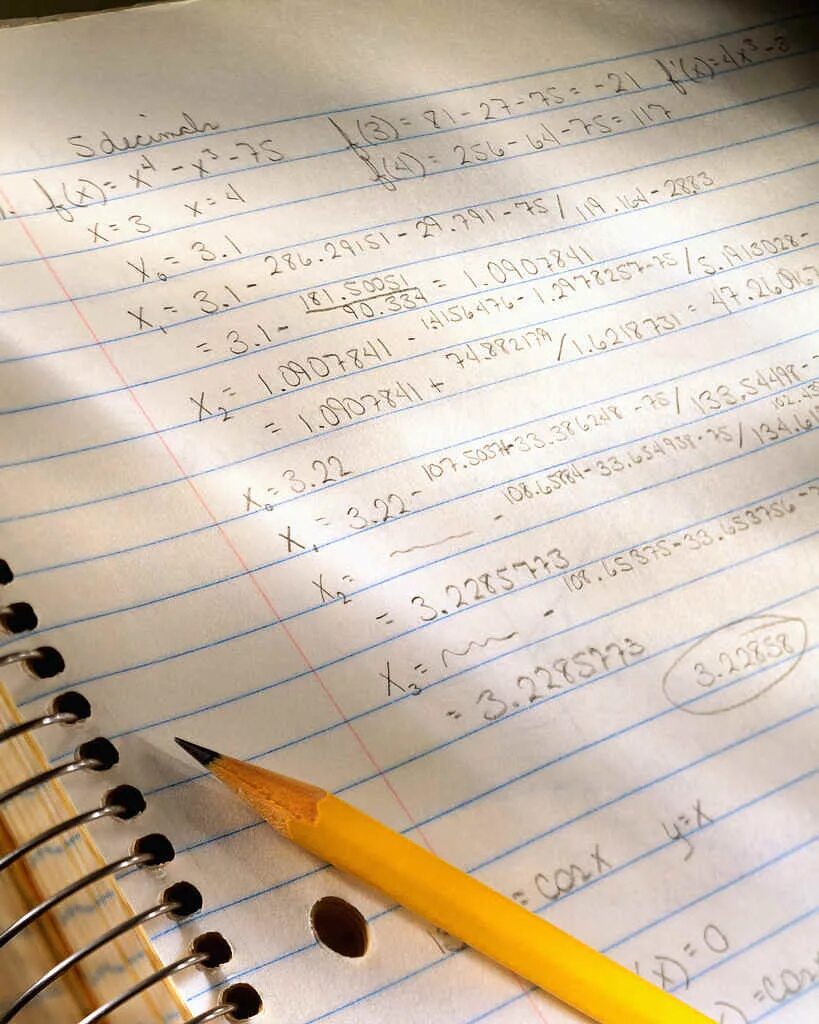 5 decimals
1. f(x) = x⁴ - x³ - 75 f(3) = 81 - 27 - 75 = -21 f'(x) = 4x³ - 3
x = 3 x = 4 f(4) = 256 - 64 - 75 = 117
x₀ = 3.1
x₁ = 3.1 - 286.29151 - 29.791 - 75 / 119.164 - 28.83
= 3.1 - 181.50051 / 90.334 = 1.0907841
x₂ = 1.0907841 - 1.4156476 - 1.2978257 - 75 / 5.1913028 -
= 1.0907841 + 74.882179 / 1.6218731 = 47.26
x₀ = 3.22
x₁ = 3.22 - 107.5037 - 33.386248 - 75 / 133.54498 -
x₂ = - 108.65884 - 33.654938 - 75 / 134.61
= 3.2285773
x₃ = - 108.65375 - 33.653756 -
= 3.2285773 3.22858
= cos x y = x
(x) = 0
) = cos